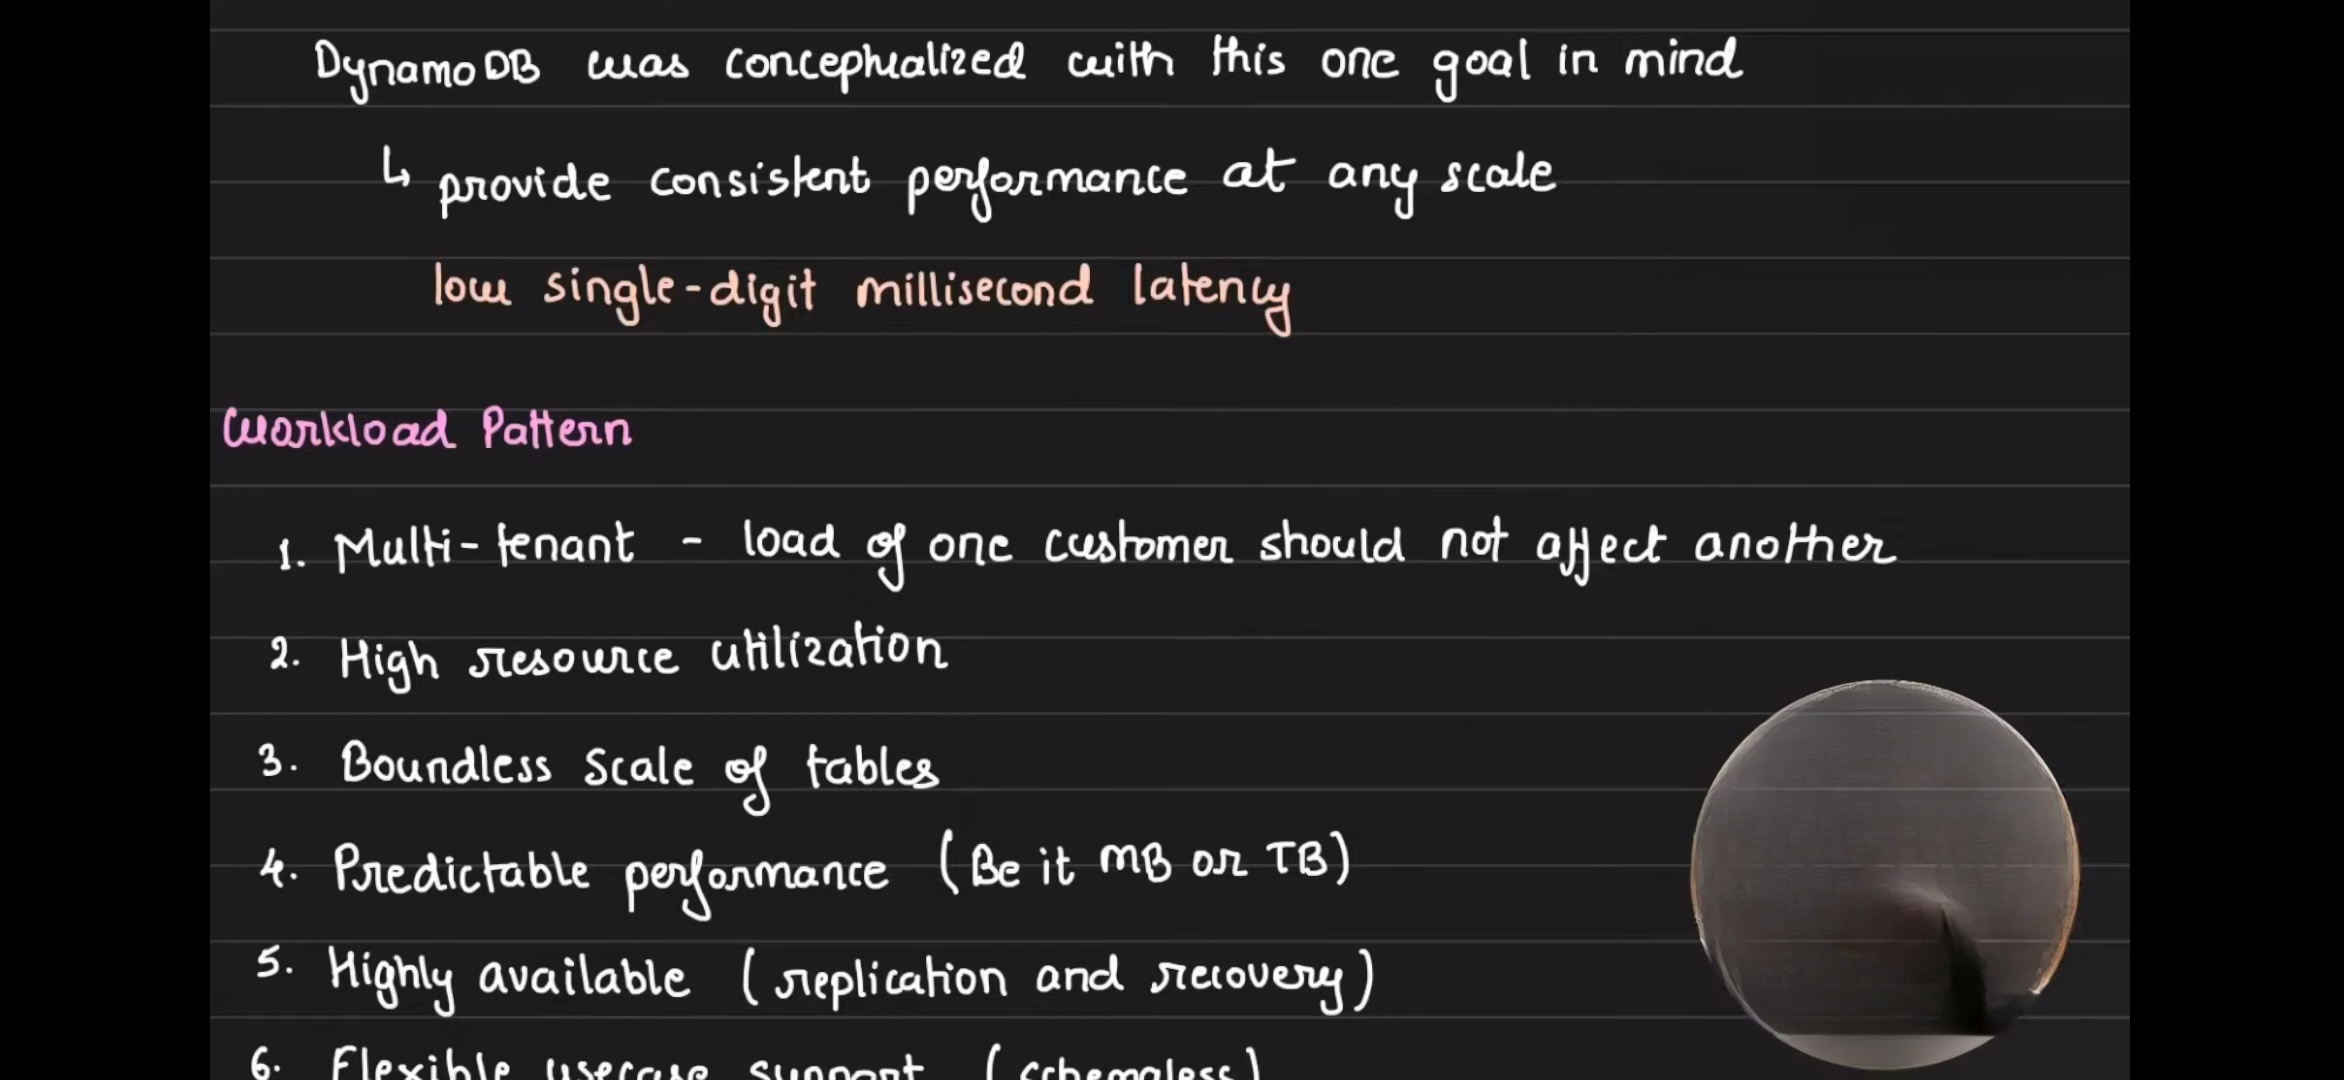 DynamoDB was conceptualized with this one goal in mind
↳ provide consistent performance at any scale
low single-digit millisecond latency
Workload Pattern
1. Multi-tenant - load of one customer should not affect another
2. High resource utilization
3. Boundless scale of tables
4. Predictable performance (Be it MB or TB)
5. Highly available (replication and recovery)
6. Flexible usecase support (schemaless)